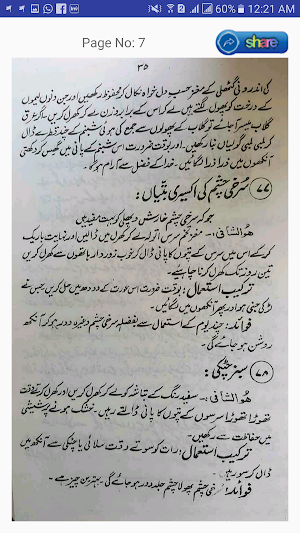 60% 12:21 AM
Page No: 7
share
۳۵
کی اندرونی گٹھلی کے مغز حسب دل خواہ نکال کر محفوظ رکھیں اور جن دنوں لیموں
کے درخت کو پھول لگتے ہیں لے کر اس کے برابر وزن لے کر کھرل کریں۔ اگر عرق
گلاب میسر آ جائے تو گلاب کے پھولوں سے جمع کی ہوئی شبنم کے چند قطرے ڈال
کر لمبی لمبی گولیاں تیار رکھیں۔ اور بوقت ضرورت اس شبنم کے پانی میں گھس کر دکھتی
آنکھوں میں ذرا ذرا لگائیں۔ خدا کے فضل سے آرام ہوگا۔
۷۷ سرخی چشم کی اکسیری بتیاں:
جو کہ سرخی چشم خارش و بہت مفید ہیں
ھوالشافی:۔ مغز تخم سرس لے کر کھرل میں ڈالیں اور نہایت باریک
کر کے اس میں سرس کے پتوں کا پانی ڈال کر خوب زوردار ہاتھوں سے کھرل کریں
تین روز تک کھرل کرنا چاہیئے۔
ترکیب استعمال: بوقت ضرورت اس عورت کے دودھ میں حل کریں جس نے
لڑکی جنی ہو اور پھر آنکھوں میں لگائیں۔
فوائد: چند یوم کے استعمال سے بفضلہ سرخی چشم وغیرہ دور ہو کر آنکھ
روشن ہو جائے گی۔
۷۸ سبز چٹکی:
ھوالشافی:۔ سفید رنگ کے لے کر کھرل کریں اور کھرل کرتے وقت
تھوڑا تھوڑا سرسوں کے پتوں کا پانی ڈالتے رہیں۔ خشک ہونے پر شیشی
میں حفاظت سے رکھیں۔
ترکیب استعمال: رات کو سوتے وقت سلائی یا چٹکی سے آنکھ میں
ڈال کر سو رہیں۔
فوائد: سرخی چشم پھولا چشم جلد دور ہو جائے گی۔ بہترین چیز ہے۔